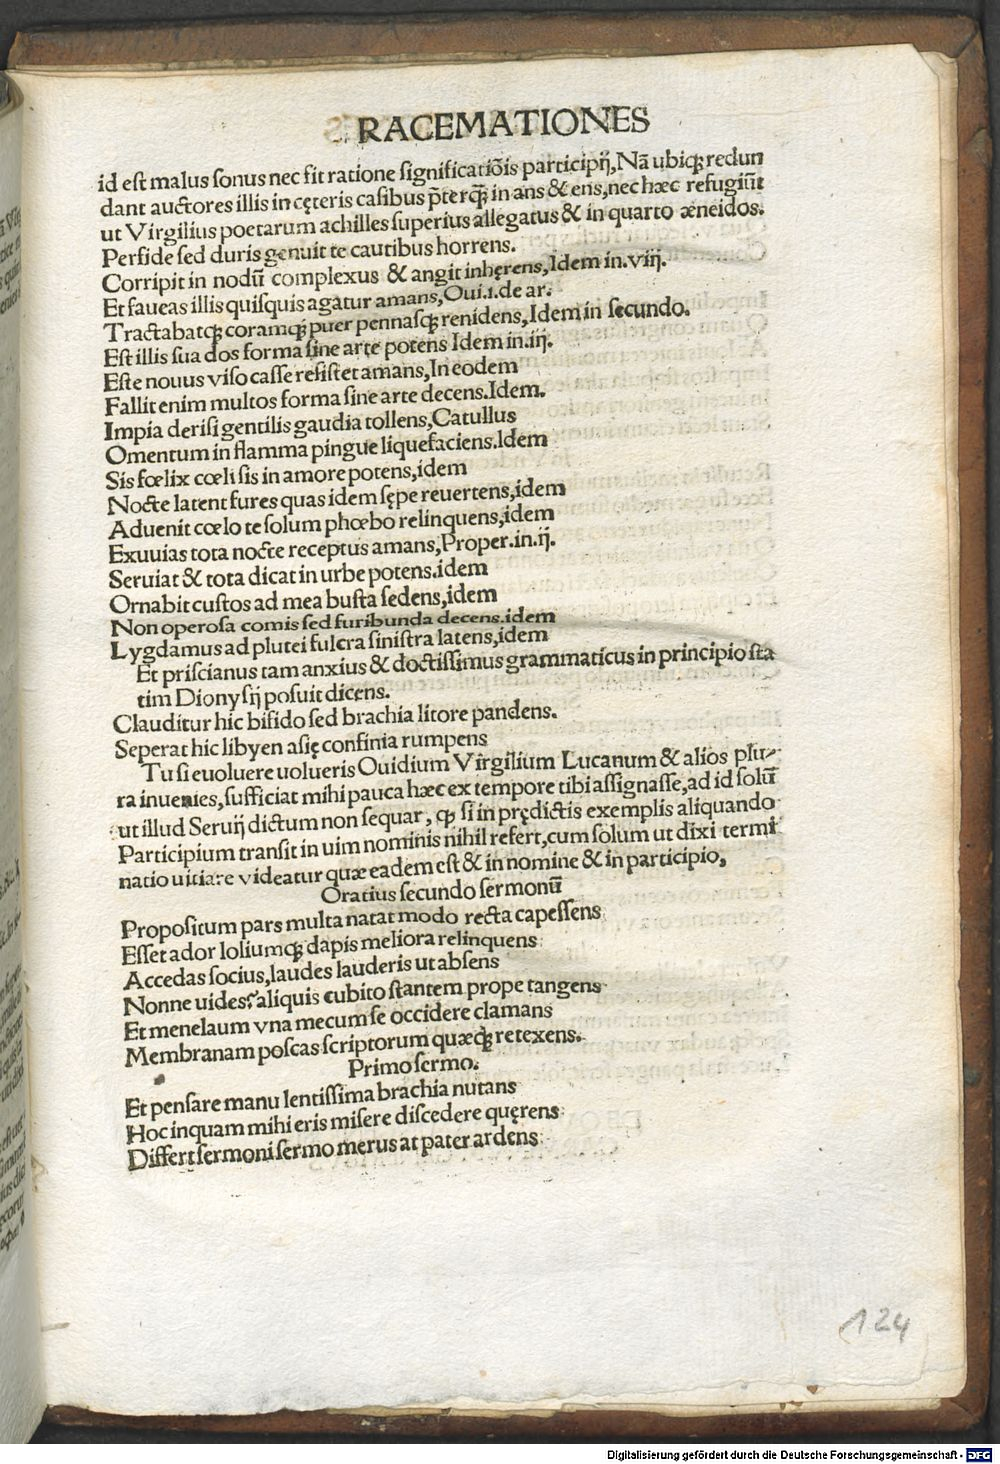 RACEMATIONES
id est malus sonus nec sit ratione significatiōis participij, Nā ubiqꝫ redun
dant auctores illis in cęteris casibus p̄terqꝫ̄ in ans & ens, nec hæc refugiūt
ut Virgilius poetarum achilles superius allegatus & in quarto æneidos.
Perfide sed duris genuit te cautibus horrens.
Corripit in nodū complexus & angit inhęrens, Idem in .viij.
Et faueas illis quisquis agatur amans, Oui.1.de ar.
Tractabatqꝫ coramqꝫ puer pennasqꝫ renidens, Idem in secundo.
Est illis sua dos forma sine arte potens Idem in.iij.
Este nouus viso casse resistet amans, In eodem
Fallit enim multos forma sine arte decens. Idem.
Impia derisi gentilis gaudia tollens, Catullus
Omentum in flamma pingue liquefaciens. Idem
Sis fœlix cœli sis in amore potens, idem
Nocte latent fures quas idem sępe reuertens, idem
Aduenit cœlo te solum phœbo relinquens, idem
Exuuias tota nocte receptus amans, Proper.in.ij.
Seruiat & tota dicat in urbe potens. idem
Ornabit custos ad mea busta sedens, idem
Non operosa comis sed furibunda decens. idem
Lygdamus ad plutei fulcra sinistra latens, idem
Et priscianus tam anxius & doctissimus grammaticus in principio sta
tim Dionysij posuit dicens.
Clauditur hic bifido sed brachia litore pandens.
Seperat hic libyen asię confinia rumpens
Tu si euoluere uolueris Ouidium Virgilium Lucanum & alios plu-
ra inuenies, sufficiat mihi pauca hæc ex tempore tibi assignasse, ad id solū
ut illud Seruij dictum non sequar, ꝙ si in prędictis exemplis aliquando
Participium transit in uim nominis nihil refert, cum solum ut dixi termi
natio uitiare videatur quæ eadem est & in nomine & in participio,
Oratius secundo sermonū
Propositum pars multa natat modo recta capessens
Esset ador loliumqꝫ dapis meliora relinquens
Accedas socius, laudes lauderis ut absens
Nonne uides? aliquis cubito stantem prope tangens
Et menelaum vna mecum se occidere clamans
Membranam poscas scriptorum quæqꝫ retexens.
Primo sermo.
Et pensare manu lentissima brachia nutans
Hoc inquam mihi eris misere discedere quęrens
Differt sermoni sermo merus at pater ardens
124
Digitalisierung gefördert durch die Deutsche Forschungsgemeinschaft - DFG